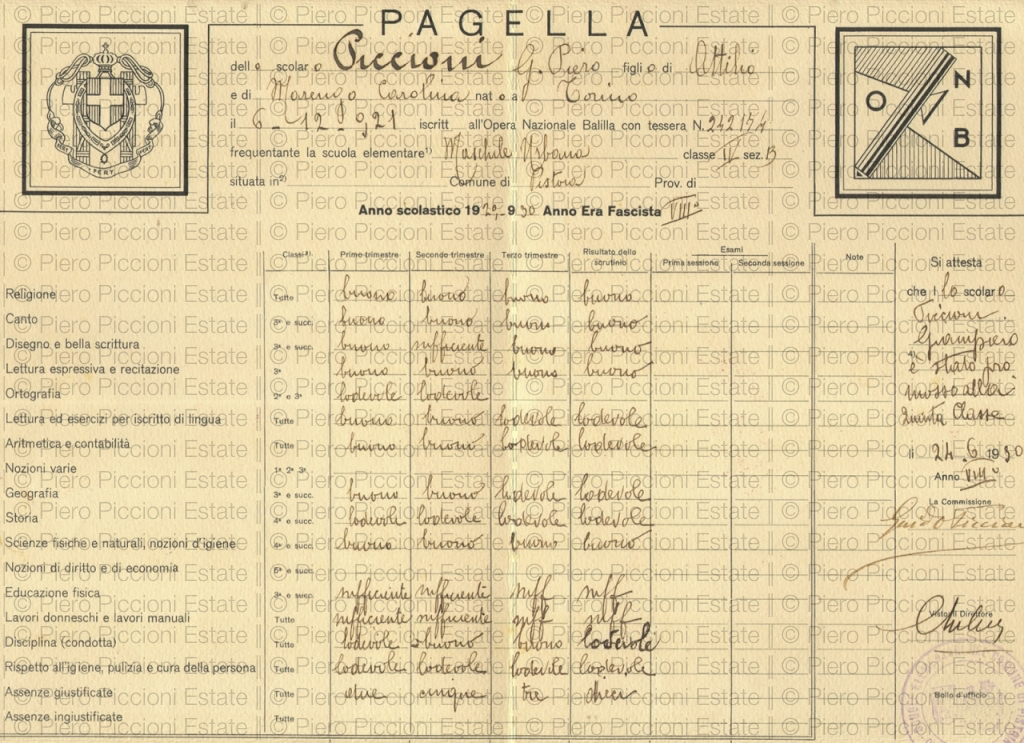 PAGELLA
dello scolaro Piccioni G. Piero figlio di Attilio
e di Marengo Carolina nato a Torino
il 6-12-921 iscritt all'Opera Nazionale Balilla con tessera N. 242154
frequentante la scuola elementare¹) Maschile Urbana classe IV sez. B
situata in²) Comune di Pistoia Prov. di
Anno scolastico 1929-930 Anno Era Fascista VIII°
O N B
FERT
Classi³) Primo trimestre Secondo trimestre Terzo trimestre Risultato dello scrutinio Esami Prima sessione Seconda sessione Note
Religione Tutte buono buono buono buono
Canto 3ª e succ. buono buono buono buono
Disegno e bella scrittura 3ª e succ. buono sufficiente buono buono
Lettura espressiva e recitazione 3ª buono buono buono buono
Ortografia 2ª e 3ª lodevole lodevole
Lettura ed esercizi per iscritto di lingua Tutte buono buono lodevole lodevole
Aritmetica e contabilità Tutte buono buono lodevole lodevole
Nozioni varie 1ª, 2ª, 3ª
Geografia 3ª e succ. buono buono lodevole lodevole
Storia 4ª e succ. lodevole lodevole lodevole lodevole
Scienze fisiche e naturali, nozioni d'igiene 4ª e succ. buono buono buono buono
Nozioni di diritto e di economia 5ª e succ.
Educazione fisica 3ª e succ. sufficiente sufficiente suff suff
Lavori donneschi e lavori manuali Tutte sufficiente sufficiente suff suff
Disciplina (condotta) Tutte lodevole buono buono lodevole
Rispetto all'igiene, pulizia e cura della persona Tutte lodevole lodevole lodevole lodevole
Assenze giustificate Tutte due cinque tre dieci
Assenze ingiustificate Tutte
Si attesta
che lo scolaro
Piccioni
Giampiero
è stato pro
mosso alla
Quinta Classe
li 24.6 1930
Anno VIII°
La Commissione
Visto: il Direttore
Bollo d'ufficio
© Piero Piccioni Estate